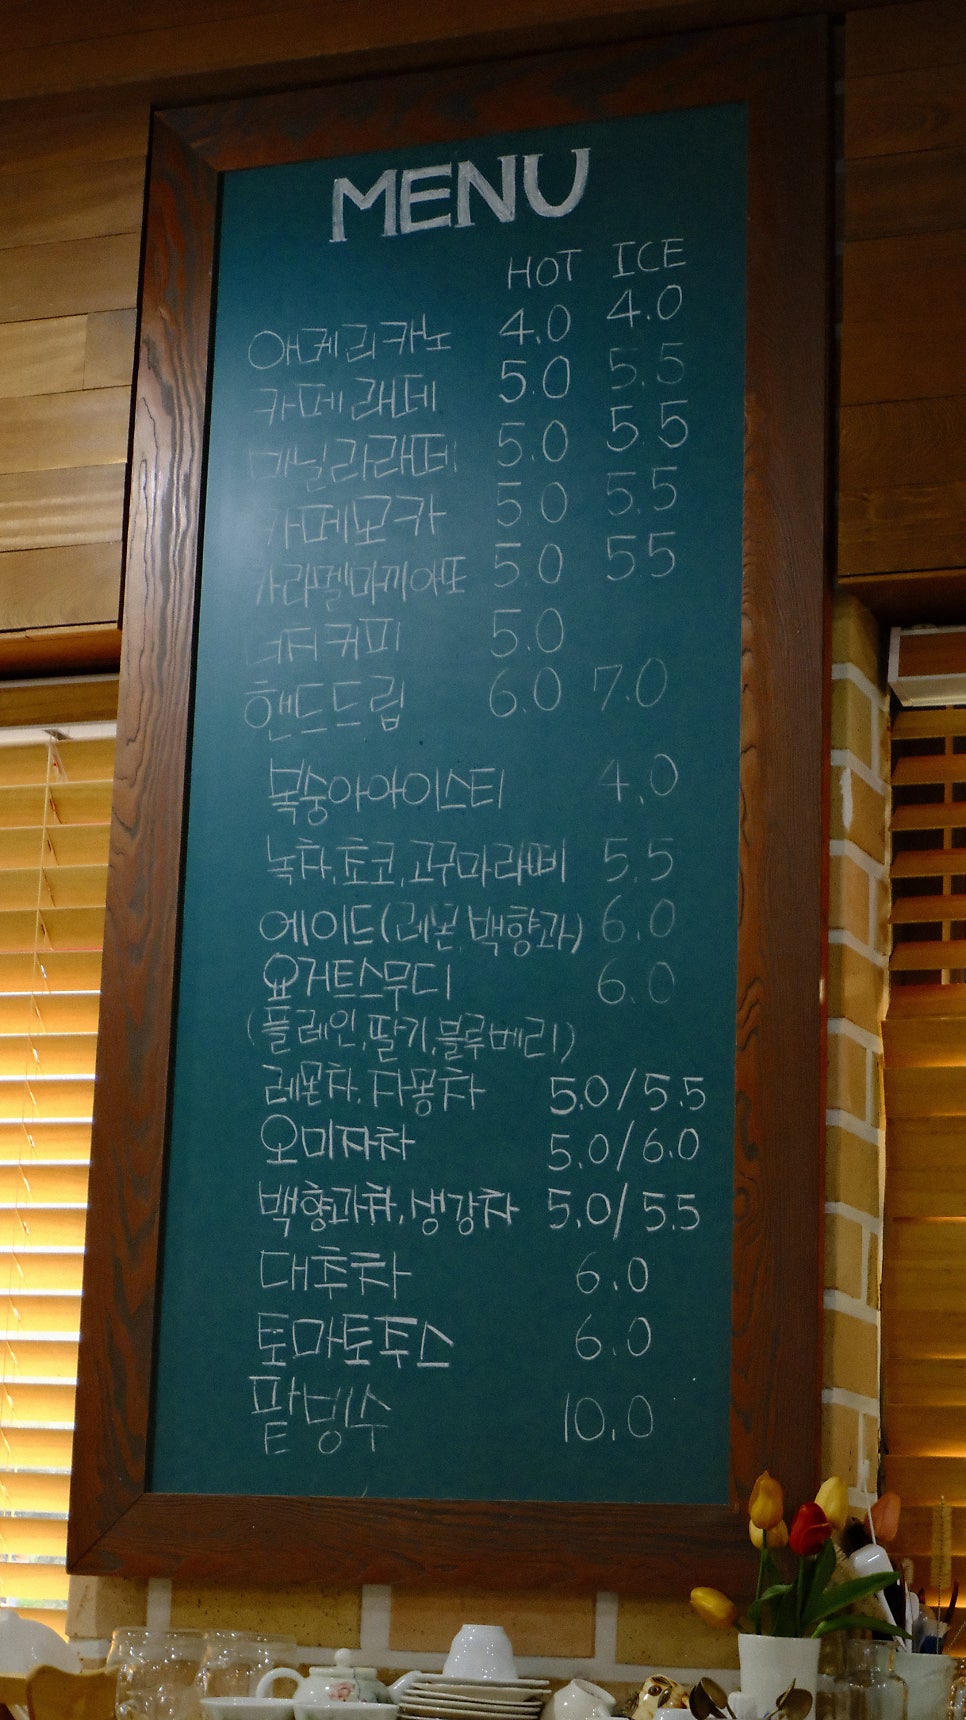 MENU
HOT ICE
아메리카노 4.0 4.0
카페라떼 5.0 5.5
바닐라라떼 5.0 5.5
카페모카 5.0 5.5
카라멜마끼아또 5.0 5.5
더치커피 5.0
핸드드립 6.0 7.0
복숭아아이스티 4.0
녹차,쵸코,고구마라떼 5.5
에이드(레몬,백향과) 6.0
요거트스무디 6.0
(플레인,딸기,블루베리)
레몬차,자몽차 5.0/5.5
오미자차 5.0/6.0
백향과차,생강차 5.0/5.5
대추차 6.0
토마토쥬스 6.0
팥빙수 10.0